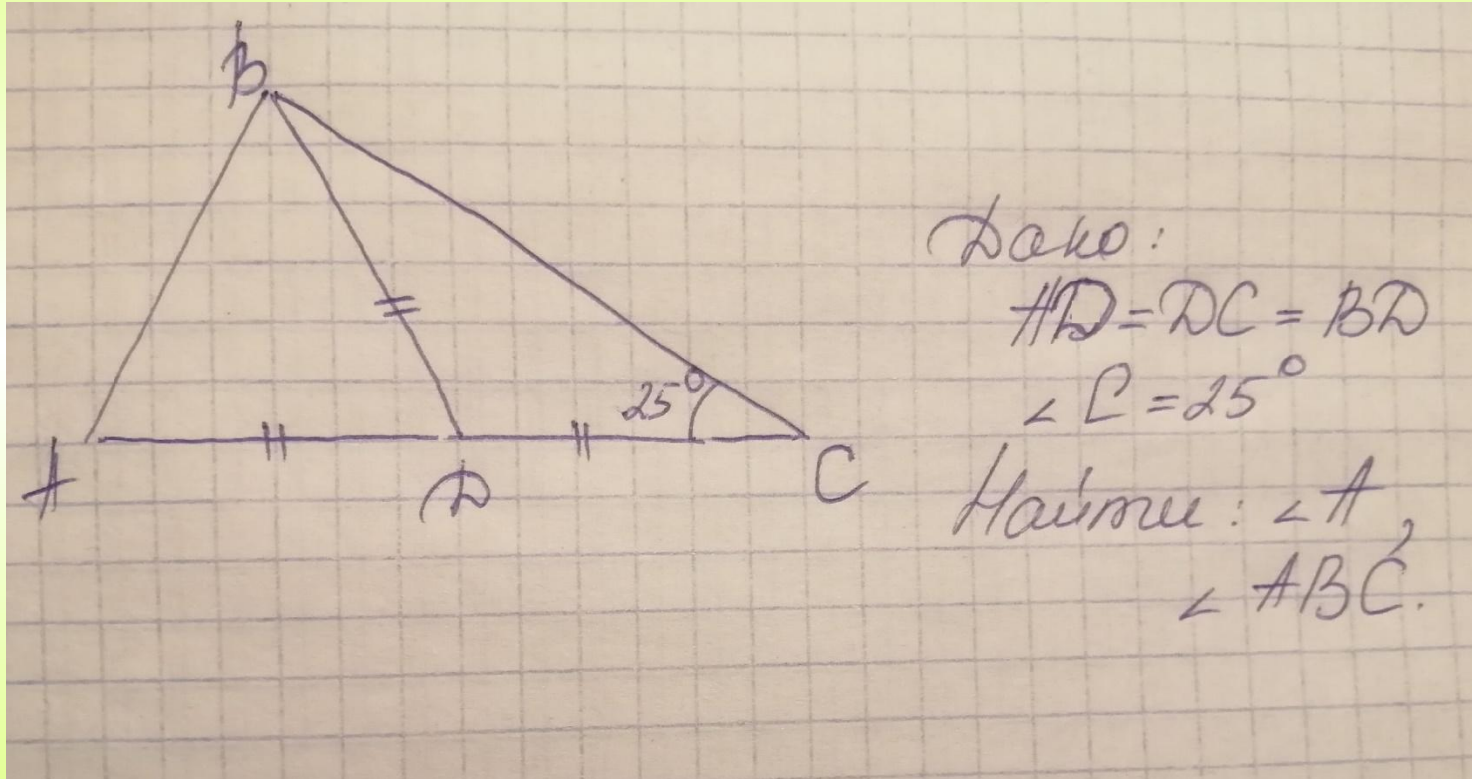 B
25°
A
D
C
Дано:
AD = DC = BD
∠ C = 25°
Найти: ∠A,
∠ ABC.